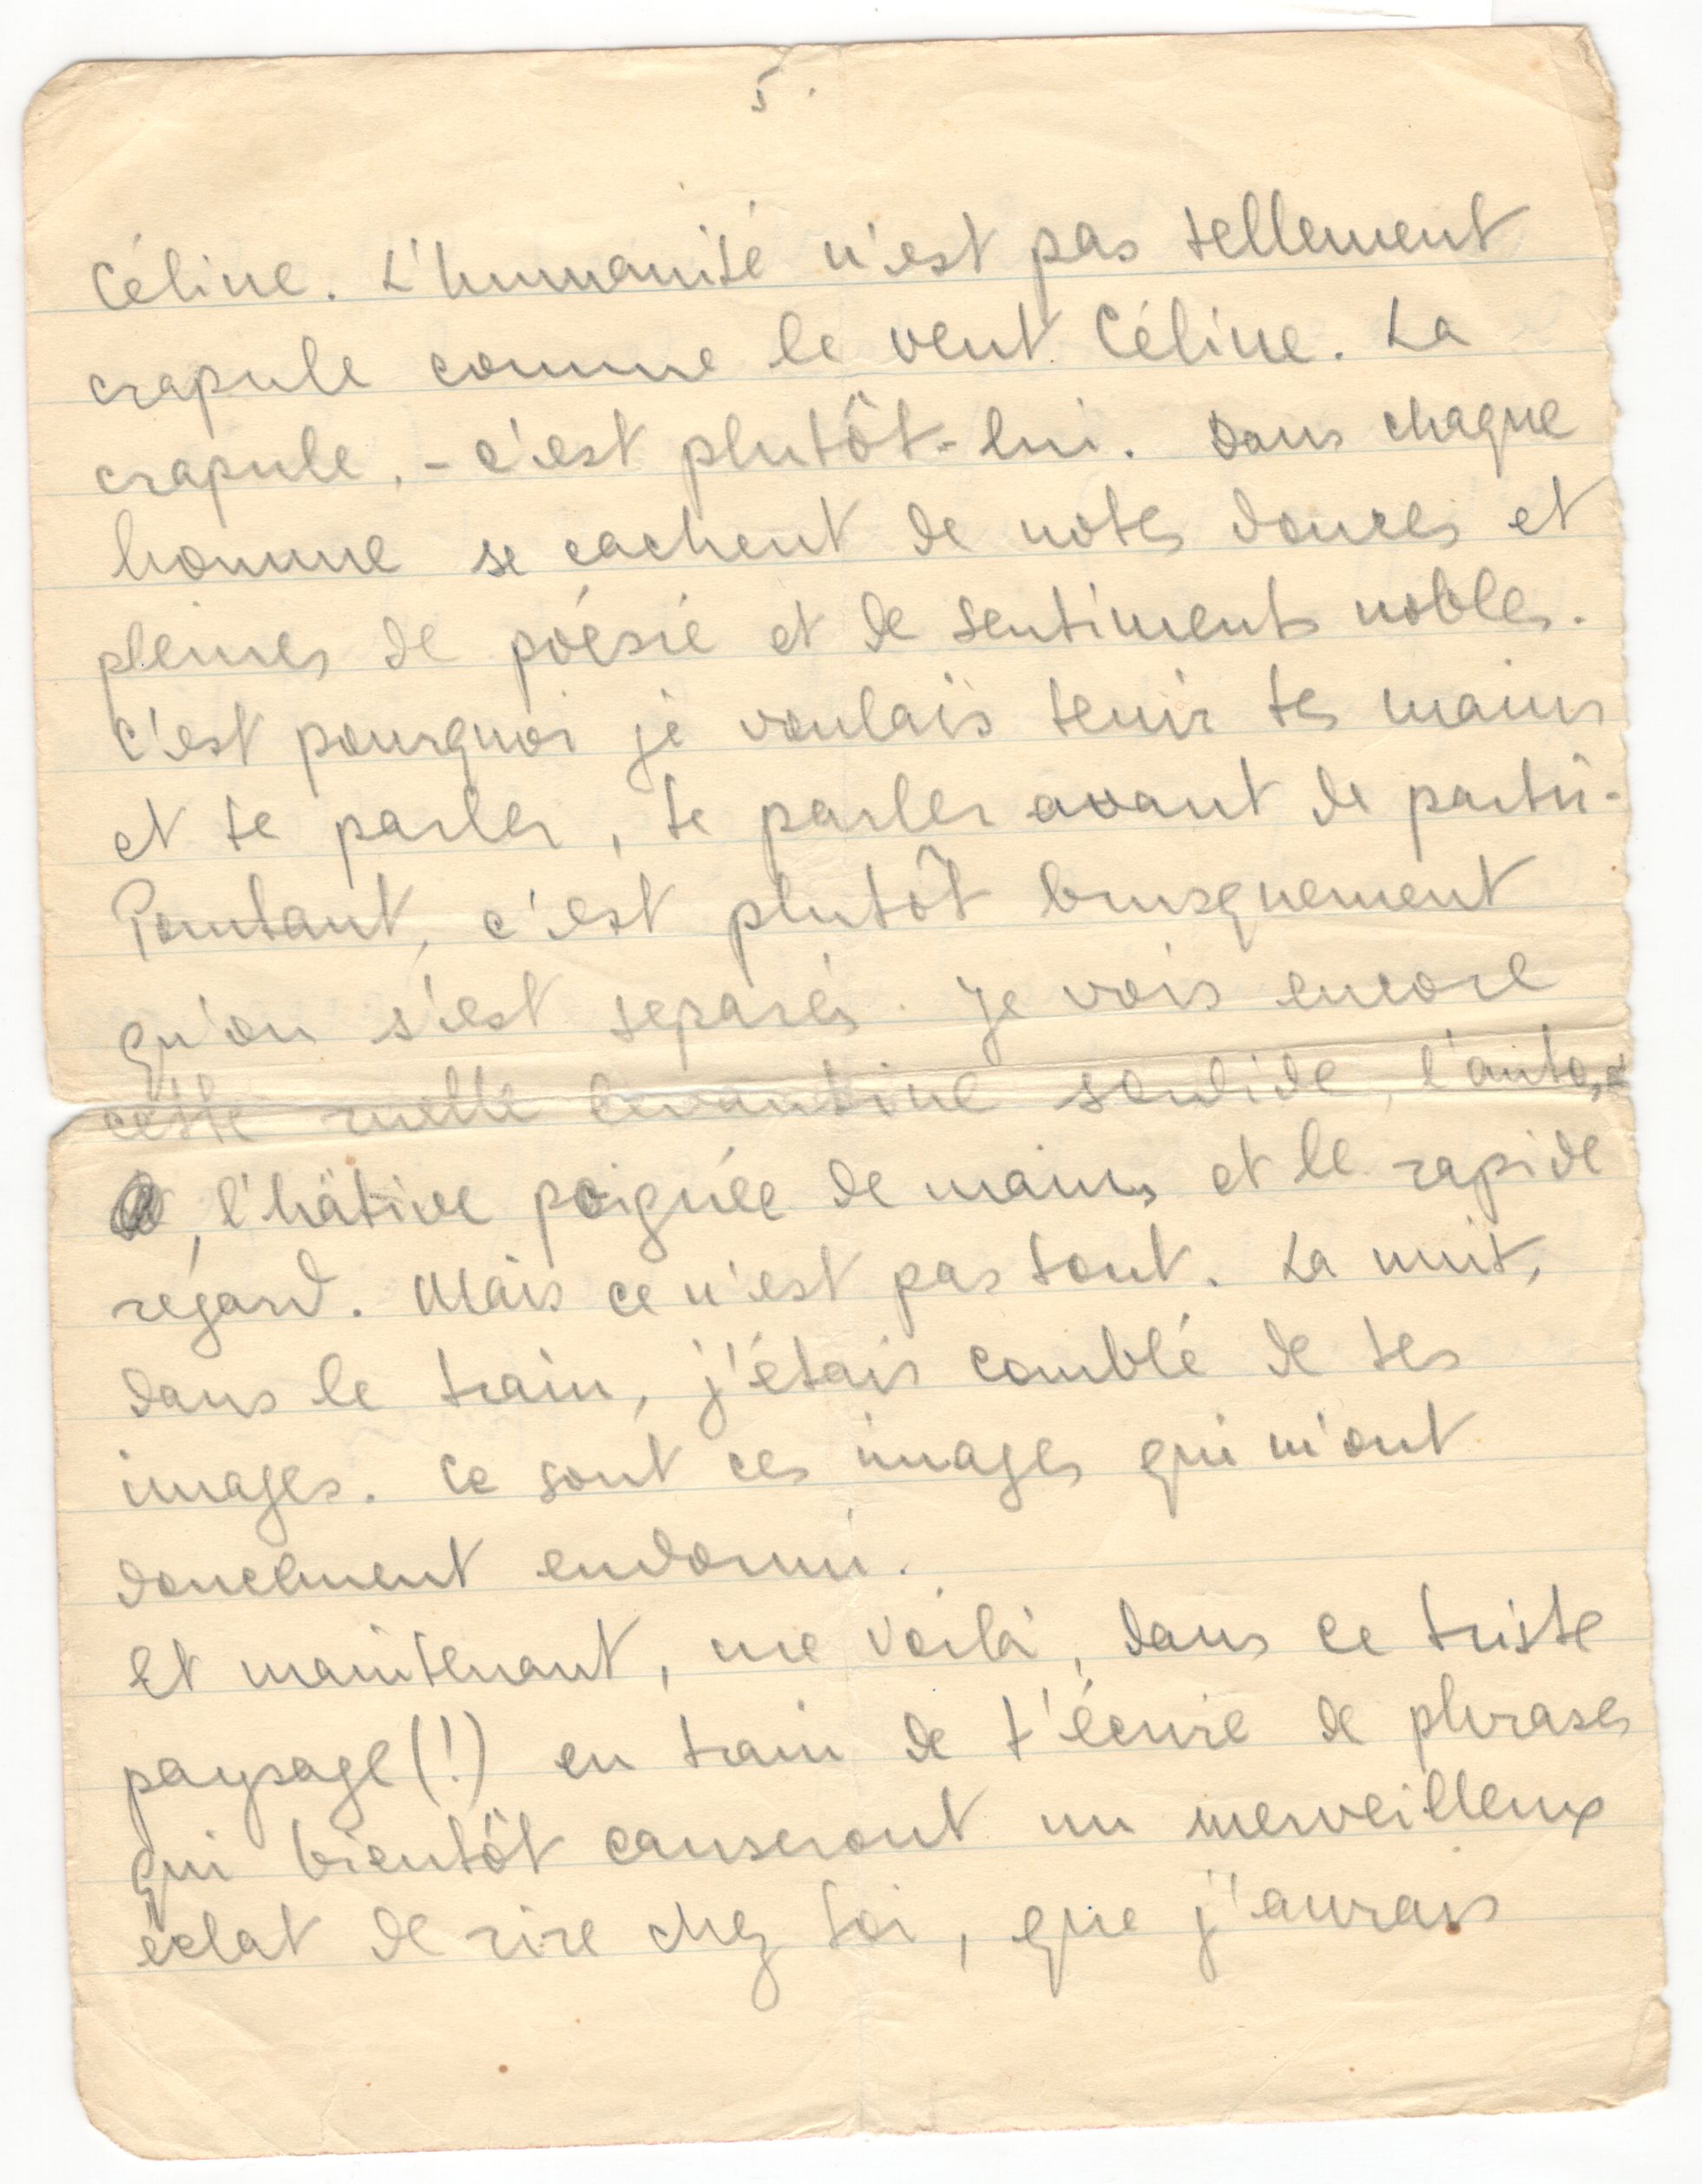 5.
Céline. L'humanité n'est pas tellement
crapule comme le veut Céline. La
crapule, - c'est plutôt - lui. Dans chaque
homme se cachent de notes douces et
pleines de poésie et de sentiments nobles.
C'est pourquoi je voulais tenir tes mains
et te parler, te parler avant de partir.
Pourtant, c'est plutôt brusquement
qu'on s'est separés. Je vois encore
cette ruelle levantine sordide, l'auto,
, l'hâtive poignée de mains et le rapide
regard. Mais ce n'est pas tout. La nuit,
dans le train, j'étais comblé de tes
images. Ce sont ces images qui m'ont
doucement endormi.
Et maintenant, me voilà, dans ce triste
paysage (!) en train de t'écrire de phrases
qui bientôt causeront un merveilleux
éclat de rire chez toi, que j'aurais